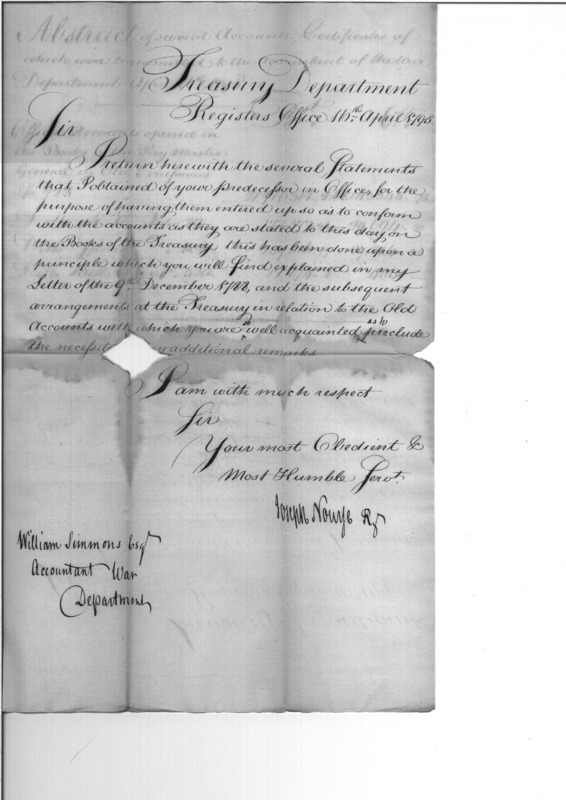 Abstract of several Accounts, Certificates of
which were transmitted to the Accountant of the War
Department
Treasury Department
Registers Office 16th April 1795.
Sir
I return herewith the several Statements
that I obtained of your predecessor in Office, for the
purpose of having them entered up so as to conform
with the accounts as they are stated to this day on
the Books of the Treasury; this has been done upon a
principle which you will find explained in my
Letter of the 9th December 1788, and the subsequent
arrangements at the Treasury in relation to the Old
Accounts with which you are so well acquainted, as to preclude
the necessity additional remarks
I am with much respect
Sir
Your most Obedient &
Most Humble Servt.
Joseph Nourse Rg
William Simmons Esqr
Accountant War
Department